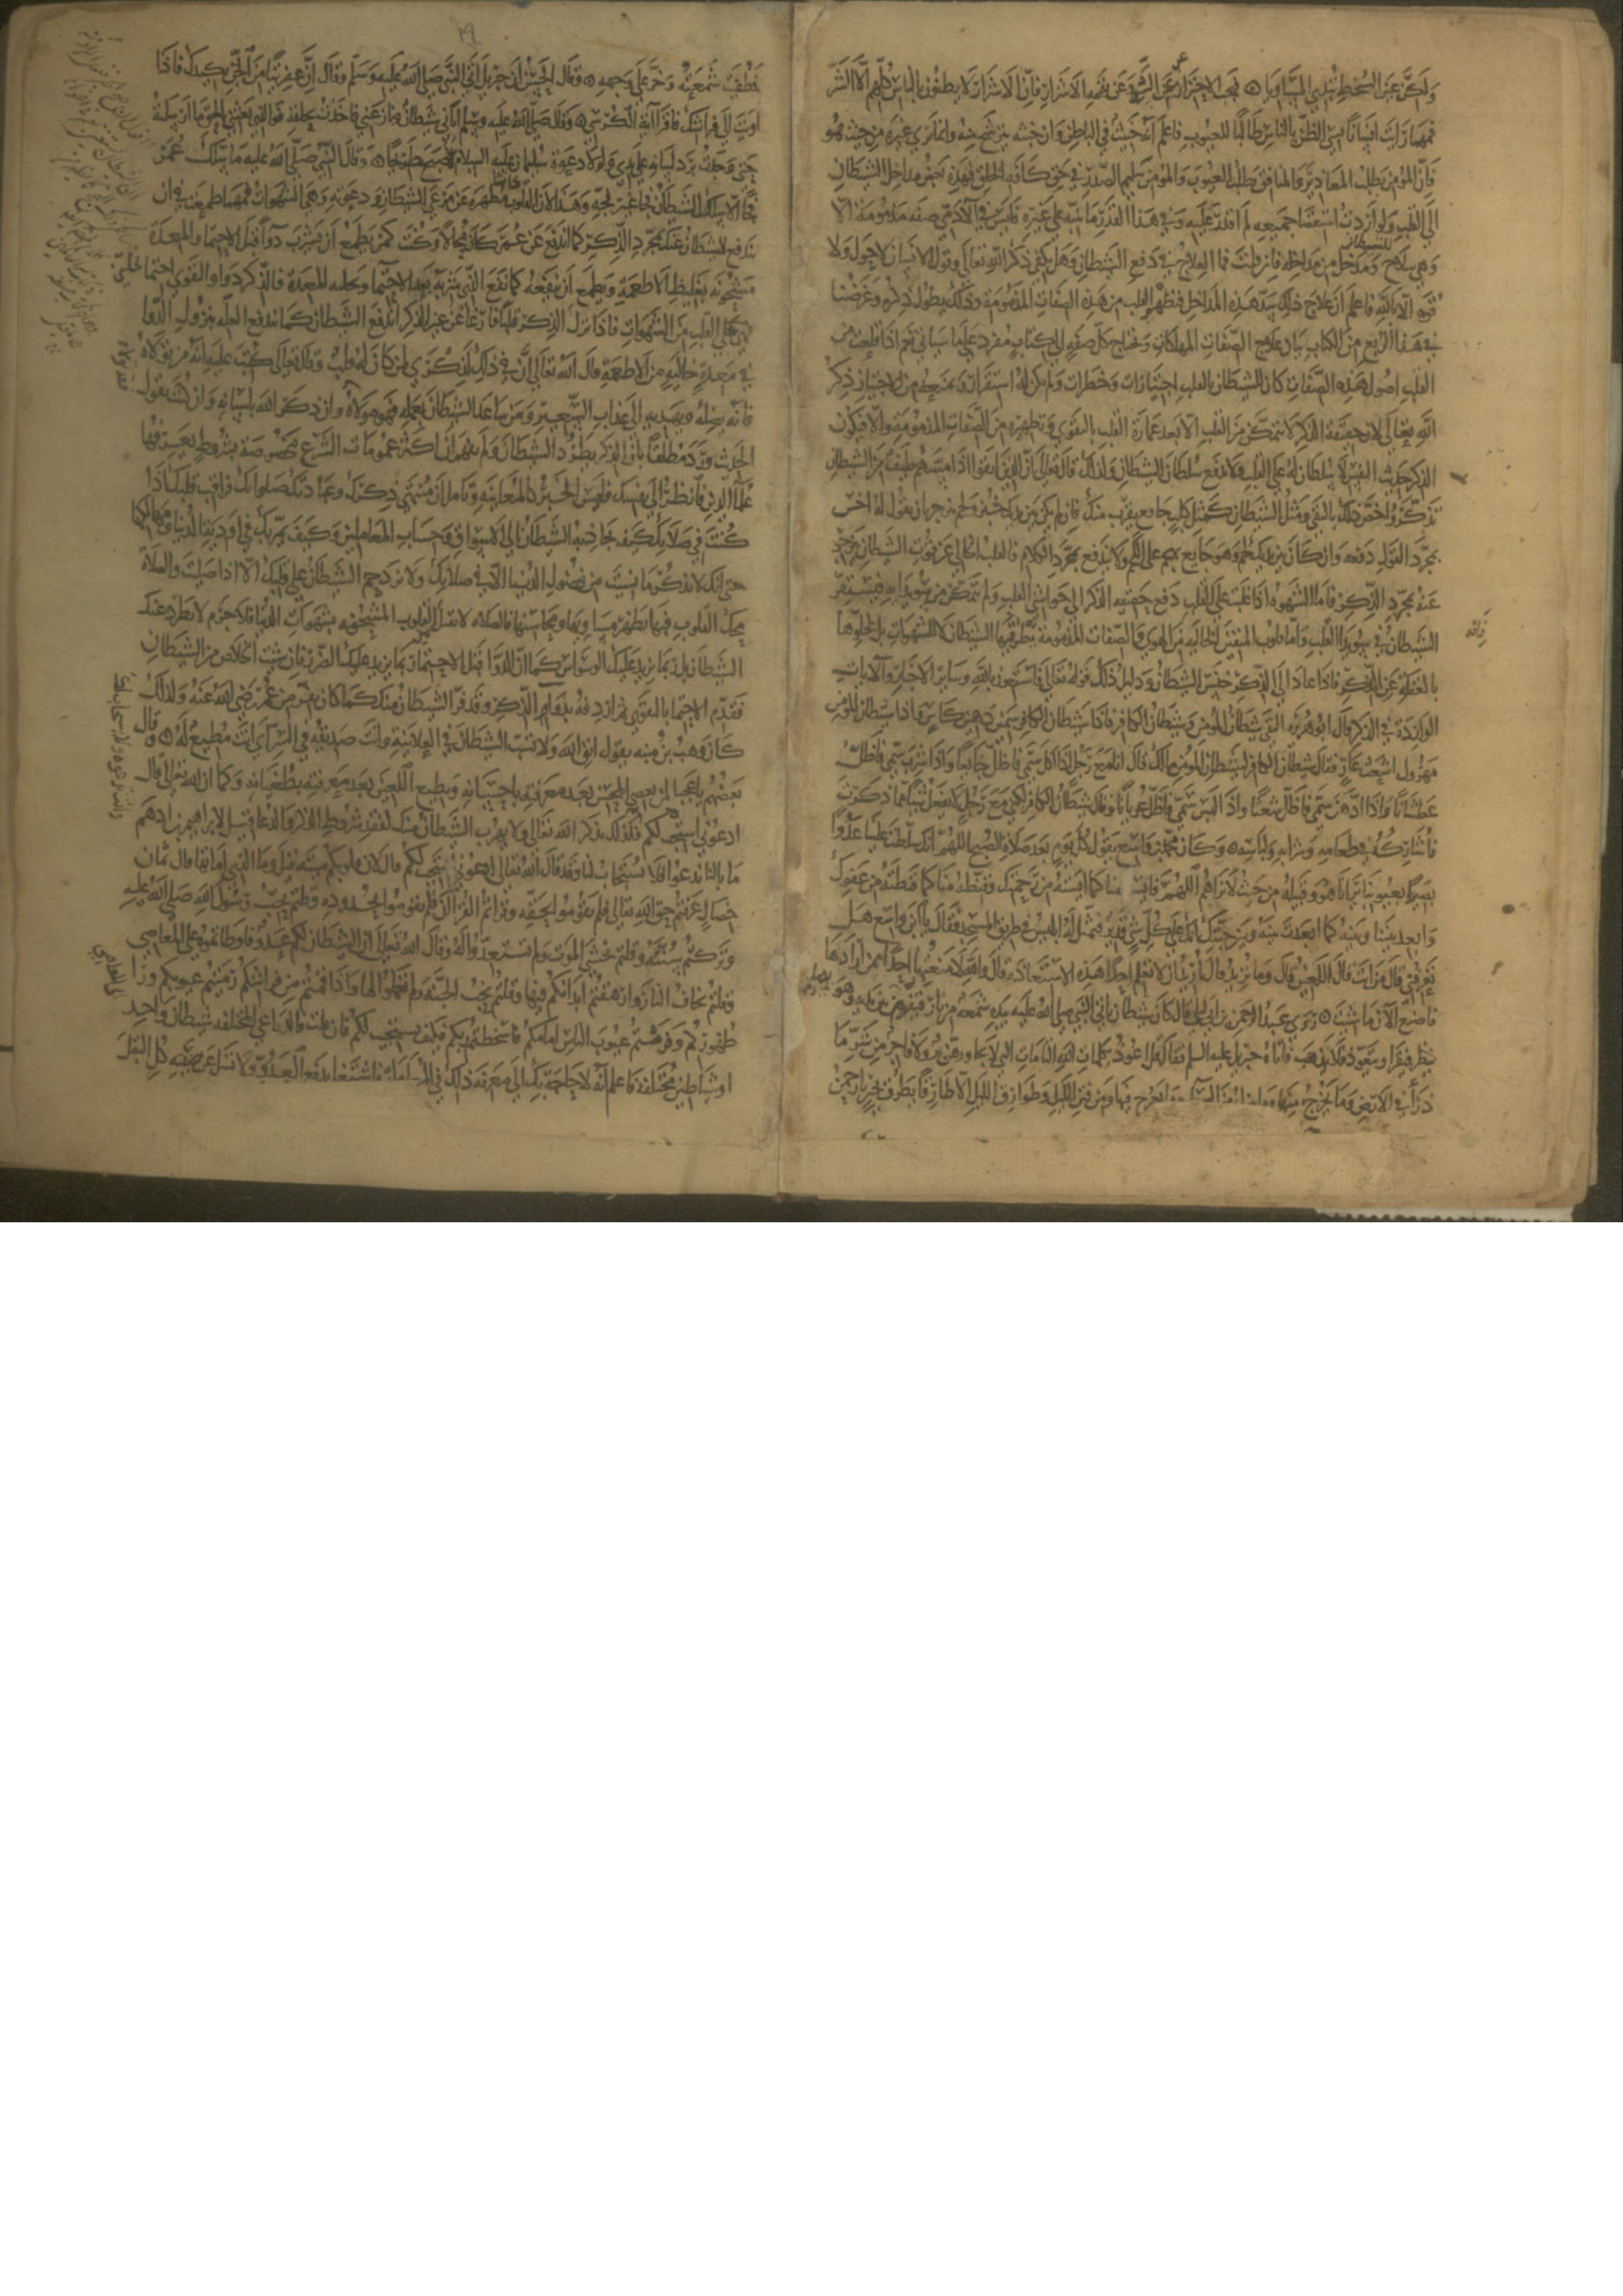 ولكن عين السخط تبدي المساويا ۞ فيجب الاحتراز عن ظن السوء وعن تهمة الاشرار فان الاشرار لا يظنون بالناس كلهم الا الشر
فمهما رايت انسانا يسيء الظن بالناس طالبا للعيوب فاعلم انه خبيث في الباطن وان خبثه يترشح منه وانما يرى غيره من حيث هو
فان المؤمن يطلب المعاذير والمنافق يطلب العيوب والمؤمن سليم الصدر في حق كافة الخلق فهذه بعض مداخل الشيطان
الى القلب ولو اردت استقصا جميعه لم اقدر عليه وفي هذا القدر ما ينبه على غيره فليس في الآدمي صفة مذمومة الا
وهي سلاح للشيطان ومدخل من مداخله فان قلت فما العلاج في دفع الشيطان وهل يكفي ذكر الله تعالى وقول الانسان لا حول ولا
قوة الا بالله فاعلم ان علاج ذلك سد هذه المداخل فتطهير القلب من هذه الصفات المذمومة وذلك يطول ذكره وغرضنا
في هذا الربع من الكتاب بيان علاج الصفات المهلكات ويحتاج كل صفة الى كتاب مفرد على ما سياتي نعم اذا قلعت من
القلب اصول هذه الصفات كان للشيطان بالقلب اجتيازات وخطرات ولم يكن له استقرار ويمنعه من الاجتياز ذكر
الله تعالى لان حقيقة الذكر لا تتمكن من القلب الا بعد عمارة القلب بالتقوى وتطهيره من الصفات المذمومة والا فيكون
الذكر حديث النفس لا سلطان له على القلب ولا يدفع سلطان الشيطان ولذلك قال تعالى ان الذين اتقوا اذا مسهم طيف من الشيطان
تذكروا خصص ذلك بالتقي ومثل الشيطان كمثل كلب جايع يقرب منك فان لم يكن بين يديك خبز ولحم ينزجر بان تقول له اخس
بمجرد القول دفعه وان كان بين يديك لحم وهو جايع يهجم على اللحم ولا يندفع بمجرد الكلام فالقلب الخالي عن قوت الشيطان ينزجر
عنه بمجرد الذكر فاما الشهوة اذا غلبت على القلب دفع حقيقة الذكر الى حواشي القلب ولم تتمكن من سويدايه فيستقر
الشيطان في سويدا القلب واما قلوب المتقين الخالية من الهوى والصفات المذمومة يتطرقها الشيطان لا للشهوات بل لخلوها
بالغفلة عن الذكر فاذا عاد الى الذكر خنس الشيطان ودليل ذلك قوله تعالى فاستعذ بالله وساير الاخبار والآيات
الواردة في الذكر قال ابو هريرة التقى شيطان المومن وشيطان الكافر فاذا شيطان الكافر سمين دهين كاس فاذا شيطان المومن
مهزول اشعث عار فقال شيطان الكافر لشيطان المومن مالك قال انا مع رجل اذا اكل سمى فاظل جايعا واذا شرب سمى فاظل
عطشانا واذا ادهن سمى فاظل شعثا واذا لبس سمى فاظل عريانا وقال شيطان الكافر لكني مع رجل لا يفعل شيئا مما ذكرت
فاشاركه في طعامه وشرابه ولباسه ۞ وكان محمد بن واسع يقول كل يوم بعد صلاة الصبح اللهم انك سلطت علينا عدوا
بصيرا بعيوبنا يرانا هو وقبيله من حيث لا نراهم اللهم فايسه منا كما ايسته من رحمتك وقنطه منا كما قنطته من عفوك
وابعد بيننا وبينه كما ابعدت بينه وبين جنتك انك على كل شي قدير فتمثل له ابليس في طريق المسجد فقال يا ابن واسع هل
تعرفني قال من انت قال اللعين قال وما تريد قال اريد ان لا تعلم احدا هذه الاستعاذة قال والله لا منعتها احدا ممن ارادها
فاصنع الآن ما شيت ۞ وروي عبد الرحمن بن ابي ليلى قال كان شيطان ياتي النبي صلى الله عليه بيده شعلة من نار فيقوم بين يديه وهو يصلي
ينظر فيقرا ويتعوذ فلا يذهب فاتاه جبريل عليه السلم فقال قل اعوذ بكلمات الله التامات التي لا يجاوزهن بر ولا فاجر من شر ما
ذرأ في الارض وما يخرج منها وما ينزل من السماء وما يعرج فيها ومن فتن الليل وطوارق الليل الا طارقا يطرق بخير يا رحمن
فطفيت شمعته وخر على وجهه ۞ وقال الحسن ان جبريل اتى النبي صلى الله عليه وسلم فقال ان عفريتا من الجن يكيدك فاذا
اويت الى فراشك فاقرا آية الكرسي ۞ وقال صلى الله عليه وسلم اتاني شيطان فنازعني فاخذت بحلقه فوالذي بعثني بالحق ما ارسلته
حتى وجدت برد لسانه على يدي ولولا دعوة سليمان عليه السلام لاصبح طريحا ۞ وقال النبي صلى الله عليه ما سلك عمر
فجا الا سلك الشيطان فجا غير فجه وهذا لان القلوب مطهرة عن مرعى الشيطان ودعوته وهي الشهوات فمهما طمعت في ان
يندفع الشيطان عنك بمجرد الذكر كما اندفع عن عمر كان محالا وكنت كمن يطمع ان يشرب دوا قبل الاحتما والمعدة
مشحونه بغليظ الاطعمة ويطمع ان ينفعه كما نفع الذي شربه بعد الاحتما وتخلية المعدة فالذكر دوا والتقوى احتما تخلي
القلب من الشهوات فاذا نزل الذكر قلبا فارغا عن غير الذكر اندفع الشيطان كما تندفع العلة بنزول الدوا
في معدة خالية من الاطعمة قال الله تعالى ان في ذلك لذكرى لمن كان له قلب وقال تعالى كتب عليه انه من تولاه
فانه يضله ويهديه الى عذاب السعير ومن ساعد الشيطان بعمله فهو مولاه وان ذكر الله بلسانه وان كنت تقول
الحديث ورد مطلقا بان الذكر يطرد الشيطان ولم تفهم ان اكثر عمومات الشرع مخصوصة بشروط يعرفها
علماء الدين فانظر الى نفسك فليس الخبر كالمعاينة وتامل ان منتهى ذكرك وعبادتك صلواتك فراقب قلبك اذا
كنت في صلاتك كيف يجاذبه الشيطان الى الاسواق وحساب المعاملين وكيف يمر بك في اودية الدنيا ومهالكها
حتى انك لا تذكر ما نسيت من فضول الدنيا الا في صلاتك ولا يزدحم الشيطان على قلبك الا اذا صليت والصلاة
محك القلوب فبها يظهر مساويها ومحاسنها فالصلاة لا تقبل من القلوب المشحونه بشهوات الدنيا فلا جرم لا يطرد عنك
الشيطان بل ربما يزيد عليك الوسواس كما ان الدوا قبل الاحتما ربما يزيد عليك الضرر فان شيت الخلاص من الشيطان
فقدم الاحتما بالتقوى ثم اردفه بدواء الذكر وقد فر الشيطان منك كما كان يفر من عمر رضي الله عنه ولذلك
كان وهب بن منبه يقول اتق الله ولا تسب الشيطان في العلانية وانت صديقه في السر اي انت مطيع له ۞ وقال
بعضهم يا عجبا لمن يعصي المحسن بعد معرفته باحسانه ويطيع اللعين بعد معرفته بطغيانه وكما ان الله تعالى قال
ادعوني استجب لكم فكذلك تذكر الله تعالى ولا يهرب الشيطان منك لفقد شروط الذكر والدعا قيل لابراهيم بن ادهم
ما بالنا ندعوا فلا يستجاب لنا وقد قال الله تعالى ادعوني استجب لكم قال لان قلوبكم ميتة قيل وما الذي اماتها قال ثمان
خصال عرفتم حق الله تعالى فلم تقوموا بحقه وقراتم القرآن فلم تقوموا بحدوده وقلتم نحب رسول الله صلى الله عليه
وتركتم سنته وقلتم نخشى الموت ولم تستعدوا له وقال الله تعالى ان الشيطان لكم عدو فواطاتموه على المعاصي
وقلتم نخاف النار وارهقتم ابدانكم فيها وقلتم نحب الجنة ولم تعملوا لها واذا قمتم من فراشكم رميتم عيوبكم ورا
ظهوركم وفرشتم عيوب الناس امامكم فاسخطتم ربكم فكيف يستجيب لكم فان قلت فالداعي الى المختلفه شيطان واحد
او شياطين مختلفة فاعلم انه لا حاجة بك الى معرفة ذلك في المعاملة فاشتغل بدفع العدو ولا تسل عن صفته كل البقل